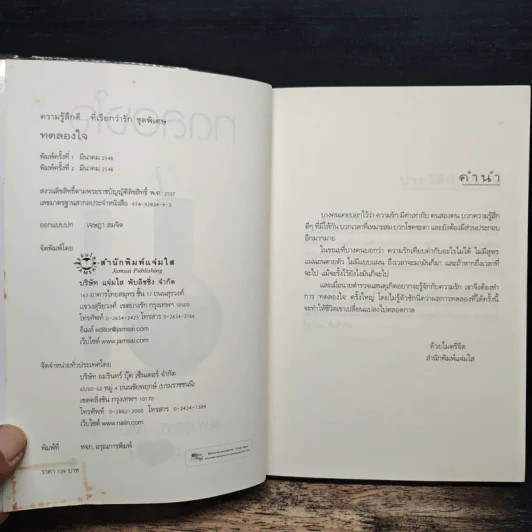 ความรู้สึกดี... ที่เรียกว่ารัก ชุดพิเศษ
ทดลองใจ
พิมพ์ครั้งที่ 1 มีนาคม 2548
พิมพ์ครั้งที่ 2 มีนาคม 2548
สงวนลิขสิทธิ์ตามพระราชบัญญัติลิขสิทธิ์ พ.ศ. 2537
เลขมาตรฐานสากลประจำหนังสือ 974-92824-9-3
ออกแบบปก เจษฎา สมจิต
จัดพิมพ์โดย
สำนักพิมพ์แจ่มใส
Jamsai Publishing
บริษัท แจ่มใส พับลิชชิ่ง จำกัด
163 อาคารไทยสมุทร ชั้น 17 ถนนสุรวงศ์
แขวงสุริยวงศ์ เขตบางรัก กรุงเทพฯ 10500
โทรศัพท์ 0-2634-2425 โทรสาร 0-2634-2764
อีเมล์ editor@jamsai.com
เว็บไซต์ www.jamsai.com
จัดจำหน่ายทั่วประเทศโดย
บริษัท อมรินทร์ บุ๊ค เซ็นเตอร์ จำกัด
65/60-62 หมู่ 4 ถนนชัยพฤกษ์ (บรมราชชนนี)
เขตตลิ่งชัน กรุงเทพฯ 10170
โทรศัพท์ 0-2882-2000 โทรสาร 0-2434-1384
เว็บไซต์ www.naiin.com
พิมพ์ที่ หจก. อรุณการพิมพ์
ราคา 139 บาท
คำนำ
บางคนเคยบอกไว้ว่า ความรัก มีค่าเท่ากับ คนสองคน บวกความรู้สึก
ดีๆ ที่มีให้กัน บวกเวลาที่เหมาะสม บวกโชคชะตา และยังต้องมีส่วนประกอบ
อีกมากมาย
ในขณะที่บางคนบอกว่า ความรักเทียบค่ากับอะไรไม่ได้ ไม่มีสูตร
แน่นอนตายตัว ไม่มีแบบแผน ถึงเวลาจะมามันก็มา และถ้าหากถึงเวลาที่
จะไป แม้จะรั้งไว้ยังไงมันก็จะไป
และเมื่อนายตำรวจแสนดุเกิดอยากจะรู้จักกับความรัก เขาจึงต้องทำ
การ ทดลองใจ ครั้งใหญ่ โดยไม่รู้ตัวซักนิดว่าผลการทดลองที่ได้ครั้งนี้
จะทำให้ชีวิตเขาเปลี่ยนแปลงไปตลอดกาล
ด้วยไมตรีจิต
สำนักพิมพ์แจ่มใส